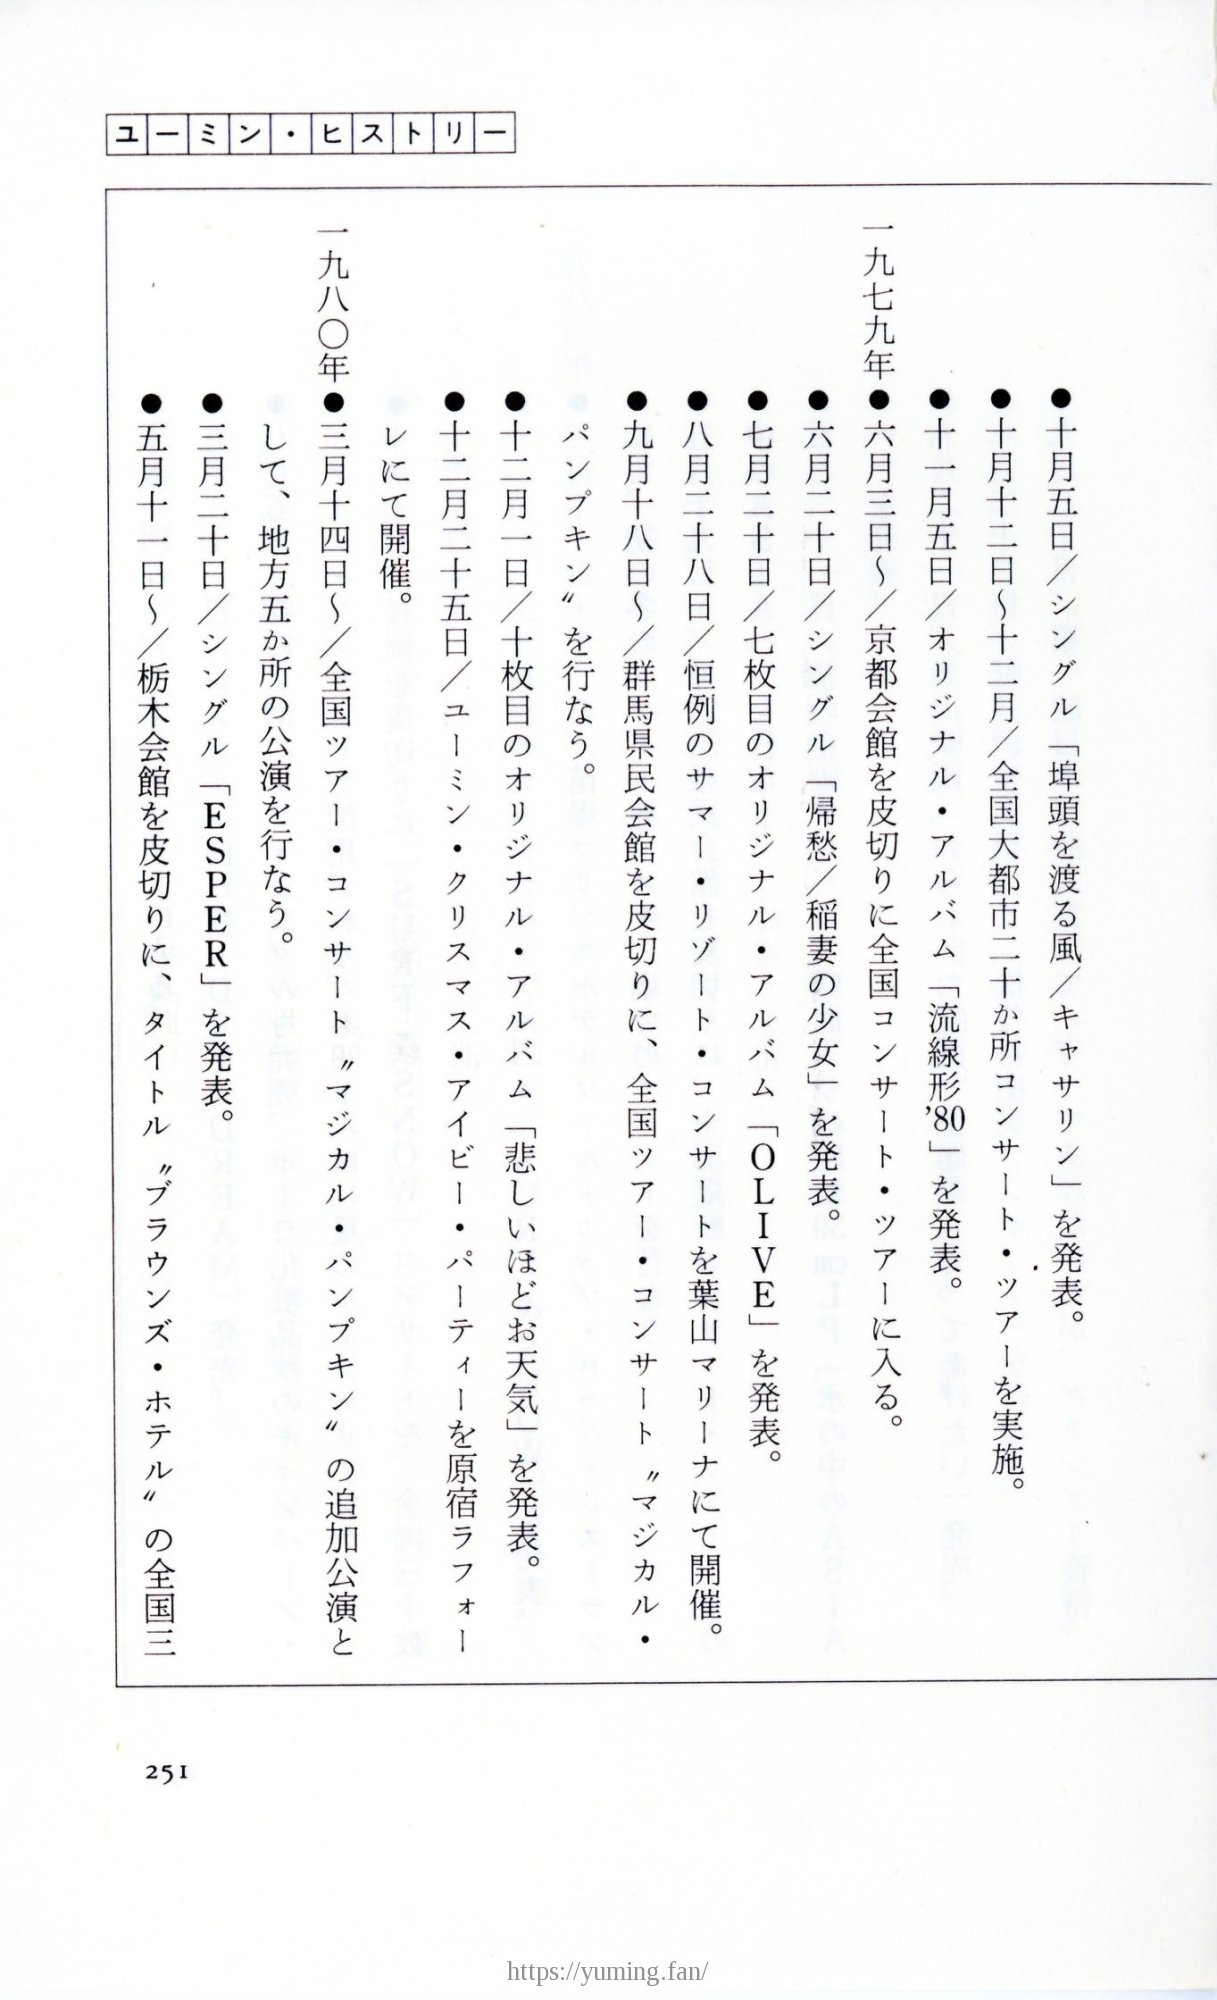 ユーミン・ヒストリー
●十月五日／シングル「埠頭を渡る風／キャサリン」を発表。
●十月十二日～十二月／全国大都市二十か所コンサート・ツアーを実施。
●十一月五日／オリジナル・アルバム「流線形’80」を発表。
一九七九年●六月三日～／京都会館を皮切りに全国コンサート・ツアーに入る。
●六月二十日／シングル「帰愁／稲妻の少女」を発表。
●七月二十日／七枚目のオリジナル・アルバム「OLIVE」を発表。
●八月二十八日／恒例のサマー・リゾート・コンサートを葉山マリーナにて開催。
●九月十八日～／群馬県民会館を皮切りに、全国ツアー・コンサート〝マジカル・
パンプキン〟を行なう。
●十二月一日／十枚目のオリジナル・アルバム「悲しいほどお天気」を発表。
●十二月二十五日／ユーミン・クリスマス・アイビー・パーティーを原宿ラフォー
レにて開催。
一九八〇年●三月十四日～／全国ツアー・コンサート〝マジカル・パンプキン〟の追加公演と
して、地方五か所の公演を行なう。
●三月二十日／シングル「ESPER」を発表。
●五月十一日～／栃木会館を皮切りに、タイトル〝ブラウンズ・ホテル〟の全国三
251
https://yuming.fan/